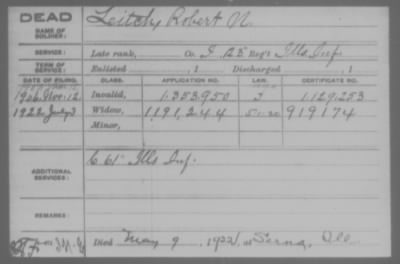 DEAD
NAME OF SOLDIER: Leitch, Robert N.
SERVICE: Late rank, Co. I, 125 Reg't Ills Inf.
TERM OF SERVICE: Enlisted , 1 Discharged , 1
DATE OF FILING. CLASS. APPLICATION NO. LAW. CERTIFICATE NO.
1906, Nov. 12 Invalid, 1.353.950 J 1.129.253
1922 July 3 Widow, 1,191,244 919174
Minor,
ADDITIONAL SERVICES: C 61" Ills Inf.
REMARKS:
Died May 9, 1922, at Ill